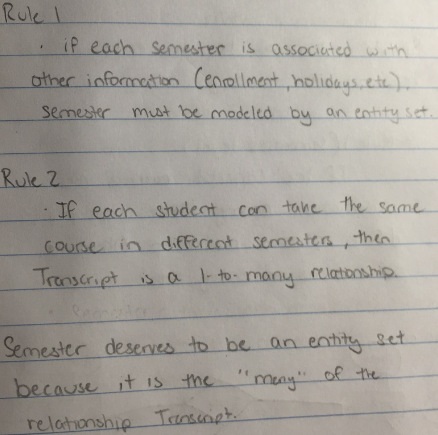 Rule 1
· if each semester is associated with
other information (enrollment, holidays, etc),
semester must be modeled by an entity set.
Rule 2
· If each student can take the same
course in different semesters, then
Transcript is a 1-to-many relationship.
Semester deserves to be an entity set
because it is the "many" of the
relationship Transcript.